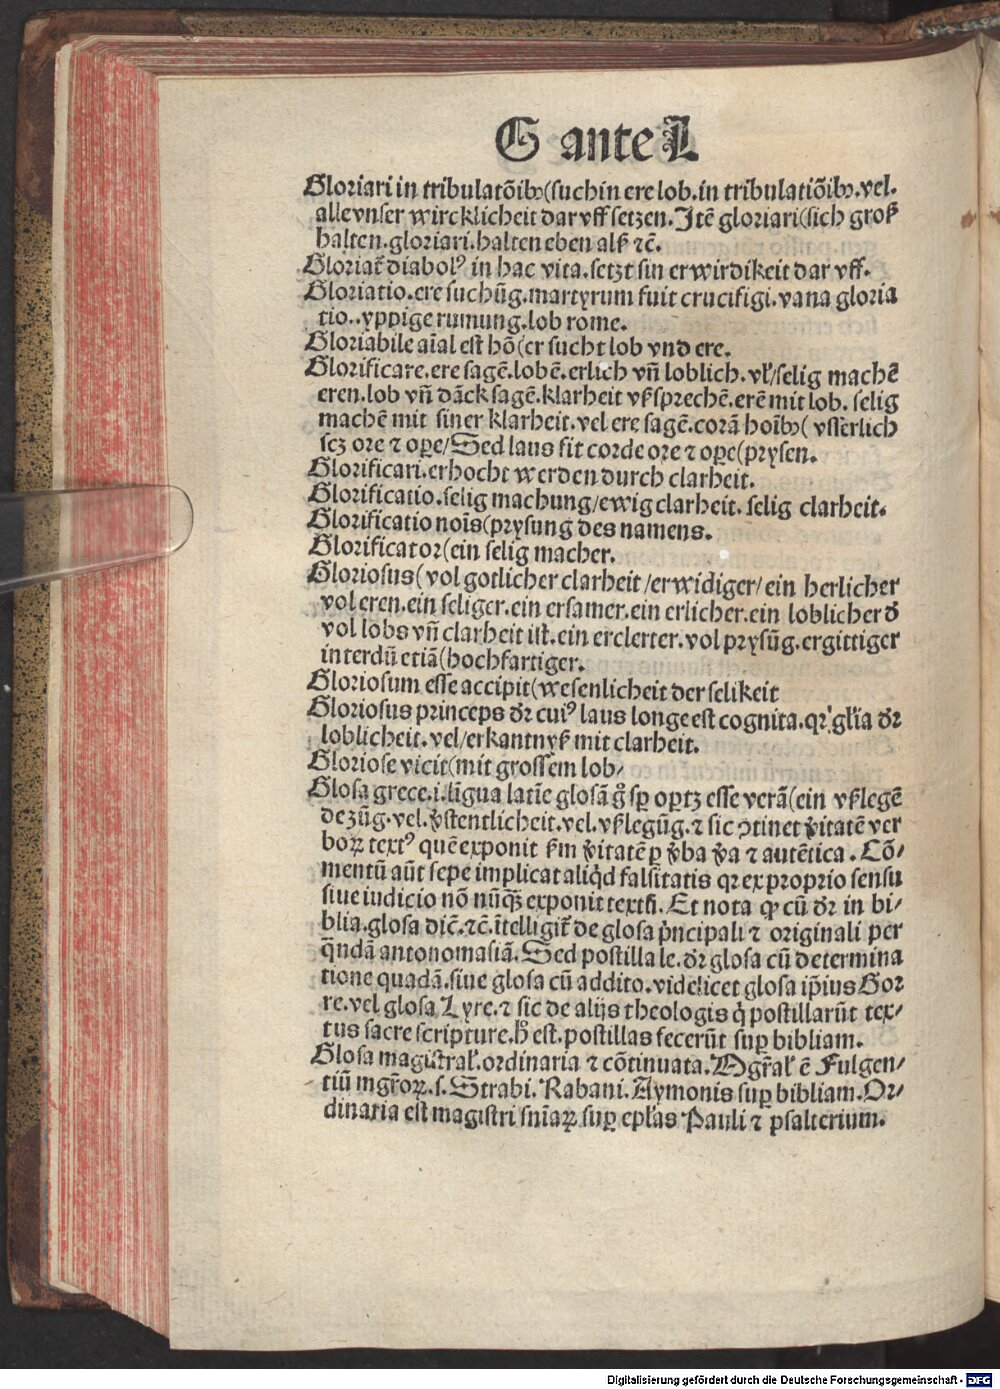 G ante L
Gloriari in tribulatōibꝰ(suchin ere lob.in tribulatiōibꝰ.vel.
alle vnser wircklicheit dar vff setzen.Itē gloriari(sich groß
halten.gloriari.halten eben alß ⁊c̄.
Gloriat̄ diabolꝰ in hac vita.setzt sin erwirdikeit dar vff.
Gloriatio.ere suchūg.martyrum fuit crucifigi.vana gloria
tio..yppige rumung.lob rome.
Gloriabile aīal est hō(er sucht lob vnd ere.
Glorificare.ere sagē.lobē.erlich vñ loblich.vl̕/selig machē
eren.lob vñ dāck sagē.klarheit vßsprechē.erē mit lob. selig
machē mit siner klarheit.vel ere sagē.corā hoībꝰ( vsserlich
scꝫ ore ⁊ oꝑe/Sed laus fit corde ore ⁊ oꝑe(prysen.
Glorificari.erhocht werden durch clarheit.
Glorificatio.selig machung/ewig clarheit. selig clarheit.
Glorificatio noīs(prysung des namens.
Glorificator(ein selig macher.
Gloriosus(vol gotlicher clarheit/erwidiger/ein herlicher
vol eren.ein seliger.ein ersamer.ein erlicher.ein loblicher đ
vol lobs vñ clarheit ist.ein erclerter.vol prysūg.ergittiger
interdū etiā(hochfartiger.
Gloriosum esse accipit(wesenlicheit der selikeit
Gloriosus princeps dr̄ cuiꝰ laus longe est cognita.qr̕ gl̕ia dr̄
loblicheit.vel/erkantnyß mit clarheit.
Gloriose vicit(mit grossem lob/
Glosa grece.i.līgua latīe glosā g̊ sꝑ oportꝫ esse verā(ein vßlegē
de zūg.vel.v̓stentlicheit.vel.vßlegūg.⁊ sic ↄtinet v̓itatē ver
boꝝ textꝰ quē exponit s̄m v̓itatē ꝑ v̓ba v̓a ⁊ autētica.Cō/
mentū aūt sepe implicat aliq̇d falsitatis qꝛ ex proprio sensu
siue iudicio nō nūqꝫ exponit textū. Et nota ꝙ cū dr̄ in bi/
blia.glosa dic̄.⁊c̄.ītelligit̄ de glosa pⁱncipali ⁊ originali per
q̄ndā antonomasiā.Sed postilla le.dr̄ glosa cū determina
tione quadā.siue glosa cū addito.videlicet glosa ip̄ius Gor
re.vel glosa Lyre.⁊ sic de alijs theologis q̇ postillarūt tex/
tus sacre scripture.h̄ est.postillas fecerūt suꝑ bibliam.
Glosa magistral̕.ordinaria ⁊ cōtinuata.Mgr̄al̕ ē Fulgen/
tiū mgr̄oꝝ.s.Strabi.Rabani.Aymonis suꝑ bibliam.Or/
dinaria est magistri sniaꝝ suꝑ epl̕as Pauli ⁊ psalterium.
Digitalisierung gefördert durch die Deutsche Forschungsgemeinschaft - DFG